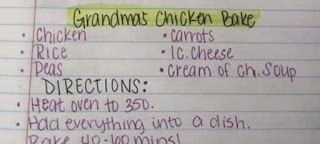 Grandmas Chicken Bake
• Chicken • Carrots
• Rice • 1C. Cheese
• Peas • Cream of Ch. Soup
DIRECTIONS:
• Heat oven to 350.
• Add everything into a dish.
Bake 40-60 mins!